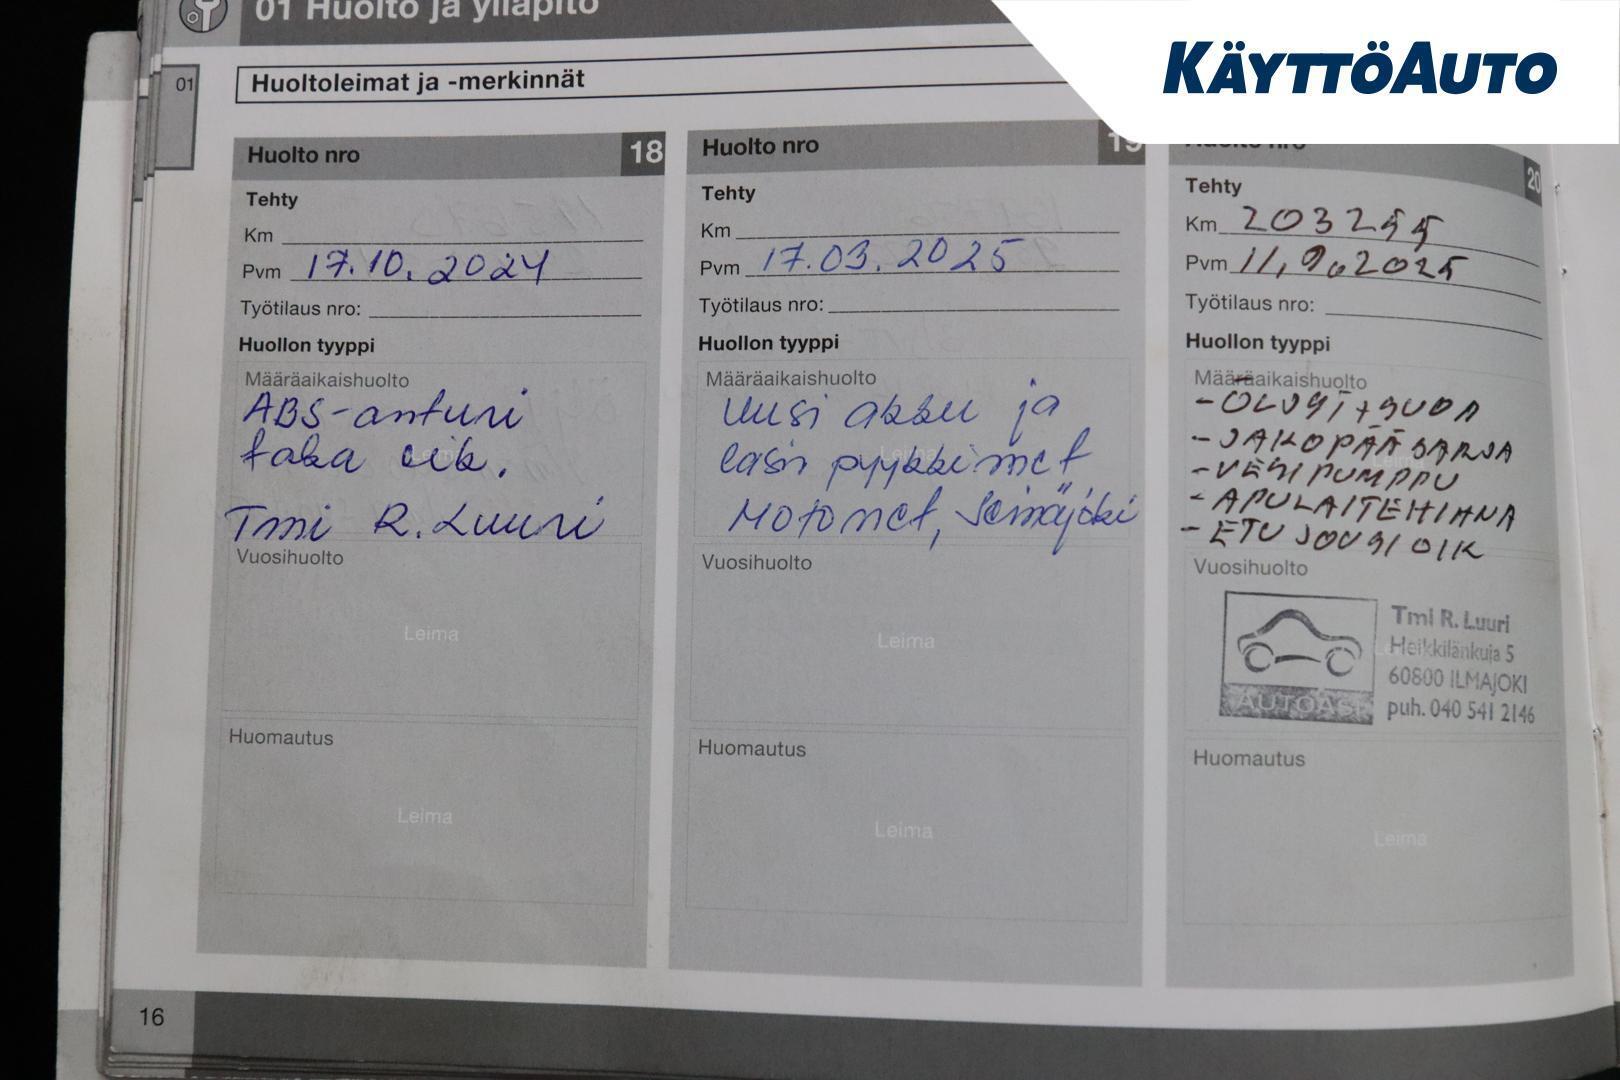 01 Huolto ja ylläpito
KÄYTTÖAUTO
01
Huoltoleimat ja -merkinnät
Huolto nro 18
Tehty
Km
Pvm 17.10.2024
Työtilaus nro:
Huollon tyyppi
Määräaikaishuolto
ABS-anturi
taka oik.
Tmi R. Luuri
Vuosihuolto
Leima
Huomautus
Leima
Huolto nro 19
Tehty
Km
Pvm 17.03.2025
Työtilaus nro:
Huollon tyyppi
Määräaikaishuolto
Uusi akku ja
lasin pyyhkimet
Motonet, Seinäjoki
Vuosihuolto
Leima
Huomautus
Leima
Huolto nro 20
Tehty
Km 203255
Pvm 11.9.2025
Työtilaus nro:
Huollon tyyppi
Määräaikaishuolto
- ÖLJYT + SUOD
- JAKOPÄÄSARJA
- VESIPUMPPU
- APULAITEHIHNA
- ETU JOUSI OIK
Vuosihuolto
Tmi R. Luuri
Heikkilänkuja 5
60800 ILMAJOKI
puh. 040 541 2146
Huomautus
Leima
16